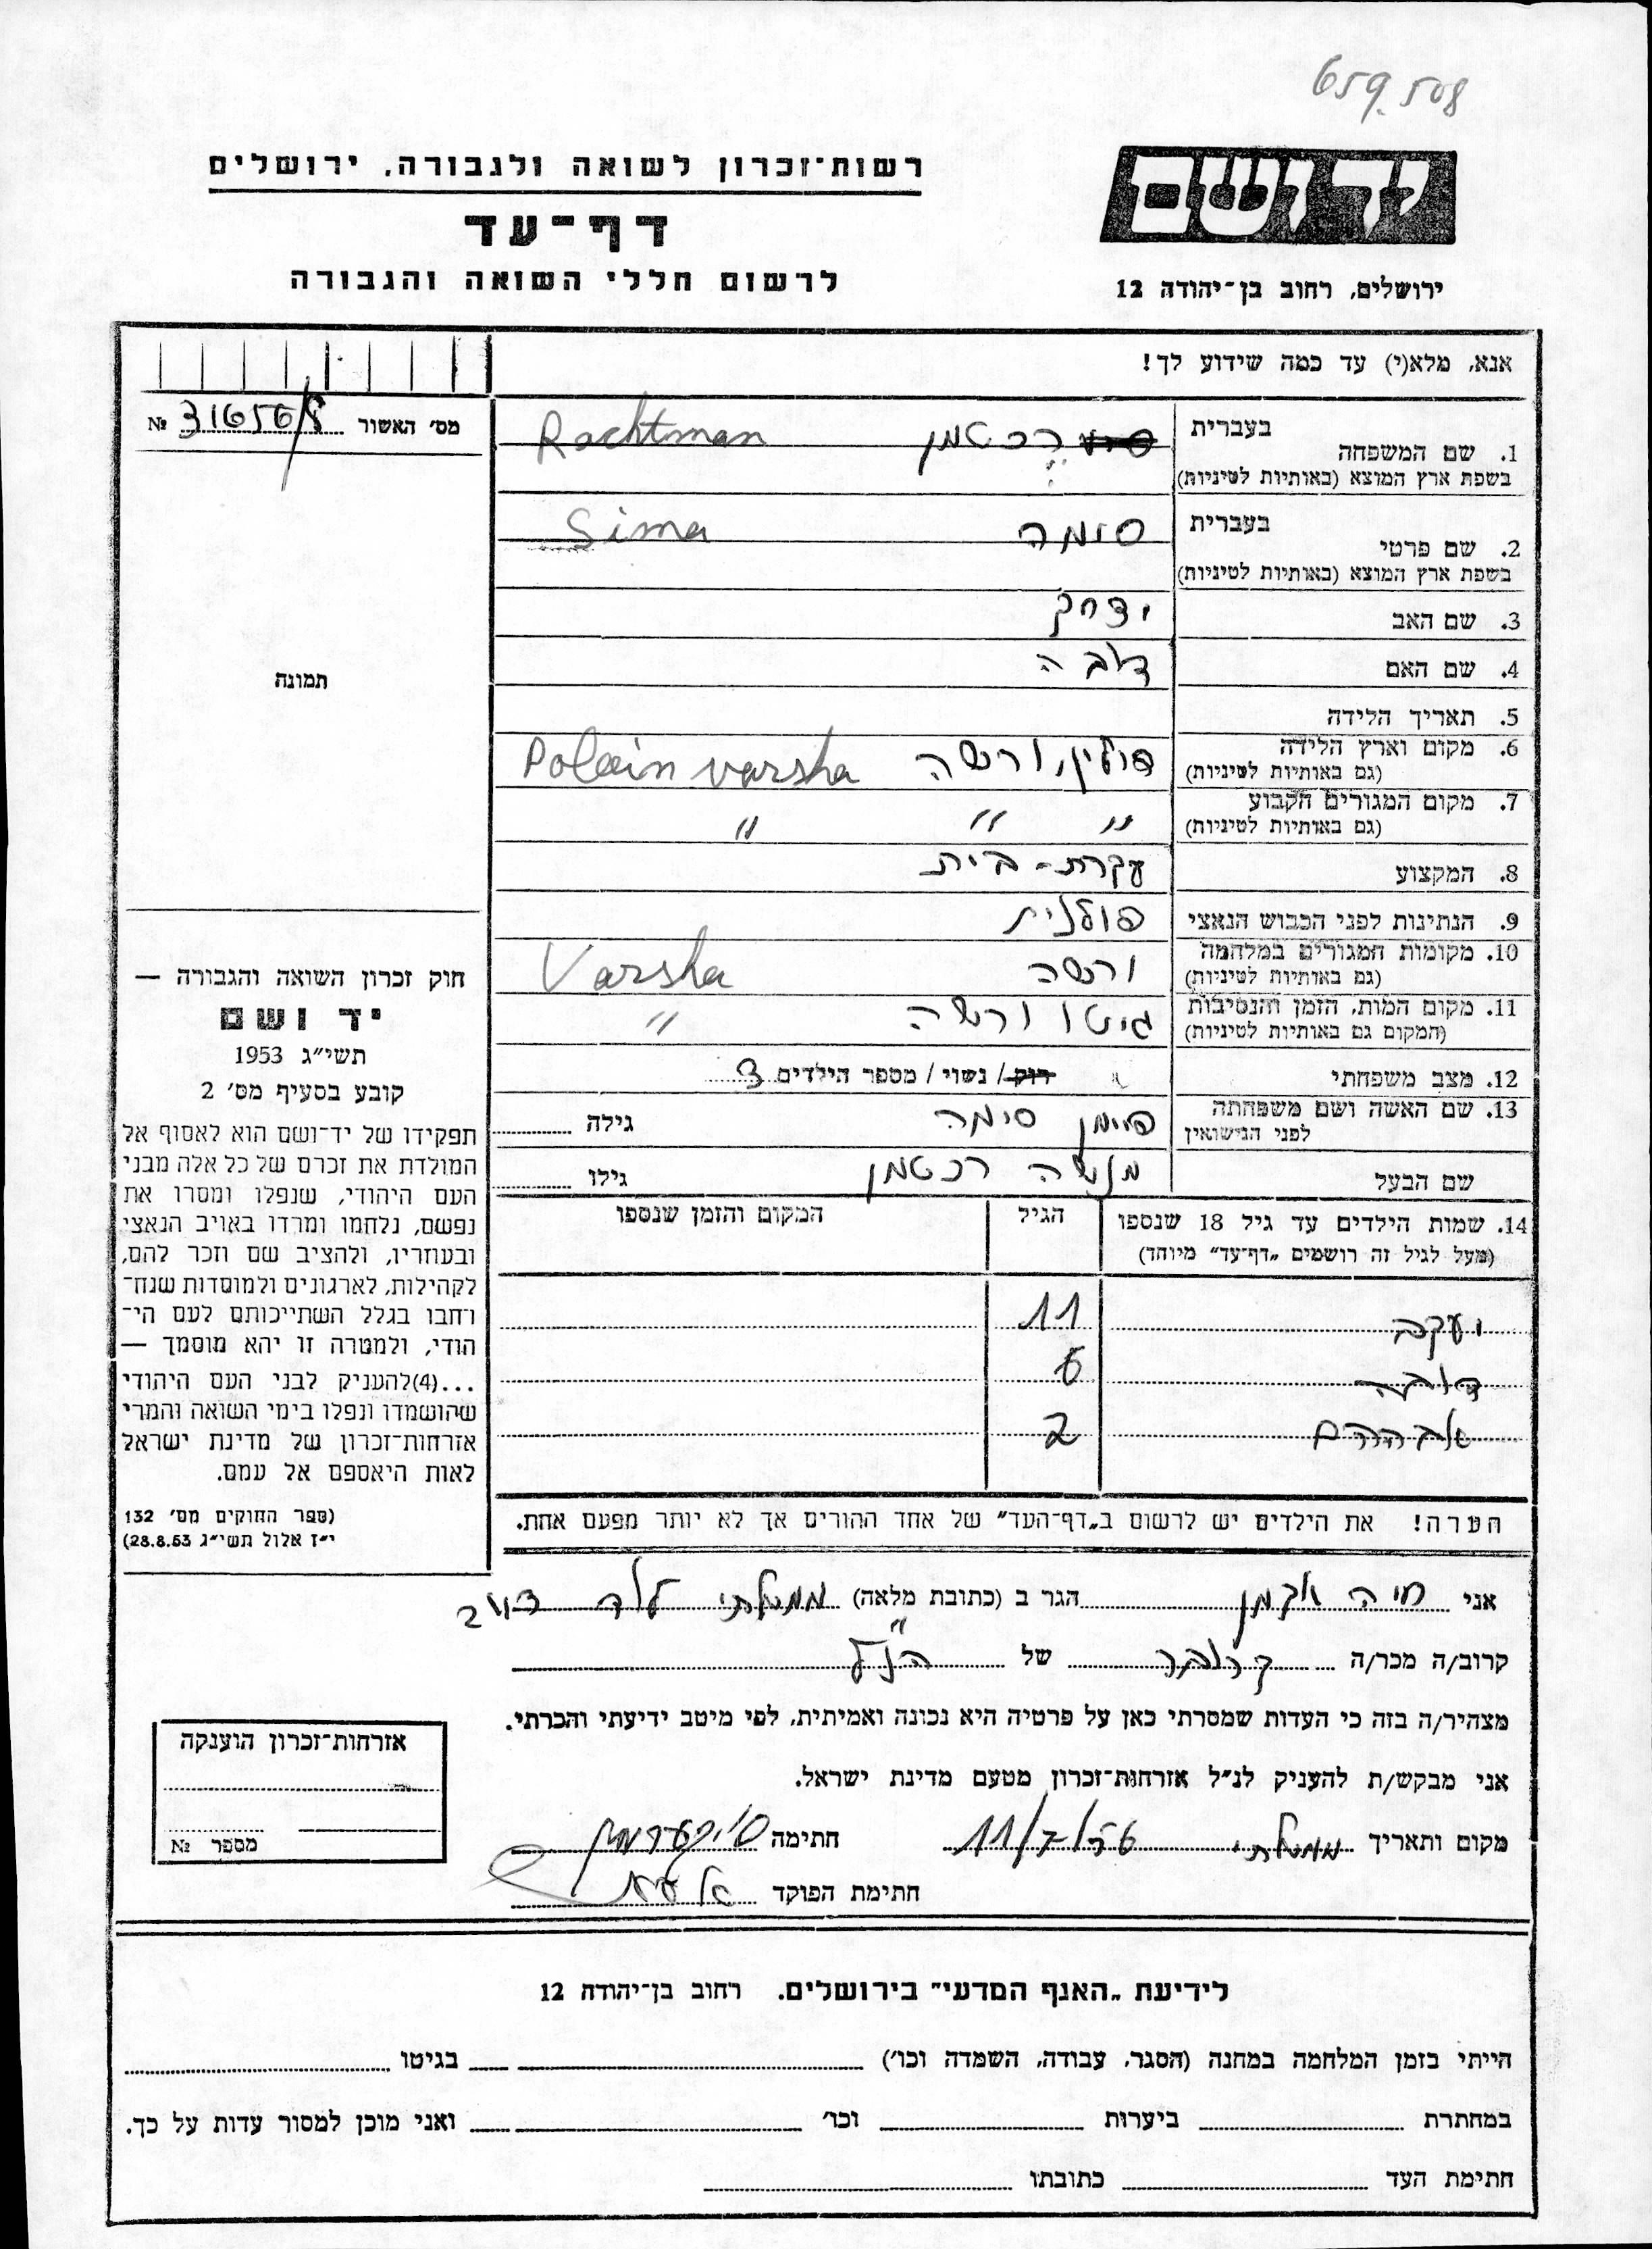 659.508
רשות־זכרון לשואה ולגבורה, ירושלים
דף־עד
לרשום חללי השואה והגבורה
ידושם
ירושלים, רחוב בן־יהודה 12
אנא, מלא(י) עד כמה שידוע לך!
מס׳ האשור 316568 №
תמונה
בעברית
1. שם המשפחה רכטמן Rachtman
בשפת ארץ המוצא (באותיות לטיניות)
בעברית
2. שם פרטי סימה Sima
בשפת ארץ המוצא (באותיות לטיניות)
3. שם האב יצחק
4. שם האם דובה
5. תאריך הלידה
6. מקום וארץ הלידה פולין, ורשה Polain varsha
(גם באותיות לטיניות)
7. מקום המגורים הקבוע " " "
(גם באותיות לטיניות)
8. המקצוע עקרת-בית
9. הנתינות לפני הכבוש הנאצי פולנית
10. מקומות המגורים במלחמה ורשה Varsha
(גם באותיות לטיניות)
11. מקום המות, הזמן והנסיבות גיטו ורשה "
(המקום גם באותיות לטיניות)
12. מצב משפחתי רוק / נשוי / מספר הילדים 3
13. שם האשה ושם משפחתה סימה גילה
לפני הנישואין
שם הבעל מנשה רכטמן גילו
14. שמות הילדים עד גיל 18 שנספו הגיל המקום והזמן שנספו
(מעל לגיל זה רושמים „דף־עד״ מיוחד)
יעקב 11
דובה 6
אברהם 2
הערה! את הילדים יש לרשום ב„דף־העד״ של אחד ההורים אך לא יותר מפעם אחת.
חוק זכרון השואה והגבורה —
יד ושם
תשי״ג 1953
קובע בסעיף מס׳ 2
תפקידו של יד־ושם הוא לאסוף אל
המולדת את זכרם של כל אלה מבני
העם היהודי, שנפלו ומסרו את
נפשם, נלחמו ומרדו באויב הנאצי
ובעוזריו, ולהציב שם וזכר להם,
לקהילות, לארגונים ולמוסדות שנח־
רבו בגלל השתייכותם לעם הי־
הודי, ולמטרה זו יהא מוסמך —
...(4)להעניק לבני העם היהודי
שהושמדו ונפלו בימי השואה והמרי
אזרחות־זכרון של מדינת ישראל
לאות היאספם אל עמם.
(ספר החוקים מס׳ 132
י״ז אלול תשי״ג 28.8.53)
אני חיה הגר ב (כתובת מלאה)
קרוב/ה מכר/ה קרובה של הנ"ל
מצהיר/ה בזה כי העדות שמסרתי כאן על פרטיה היא נכונה ואמיתית, לפי מיטב ידיעתי והכרתי.
אני מבקש/ת להעניק לנ״ל אזרחות־זכרון מטעם מדינת ישראל.
מקום ותאריך 11/7/56 חתימה
חתימת הפוקד
אזרחות־זכרון הוענקה
מספר №
לידיעת „האנף המדעי״ בירושלים. רחוב בן־יהודה 12
הייתי בזמן המלחמה במחנה (הסגר, עבודה, השמדה וכו׳) בגיטו
במחתרת ביערות וכו׳ ואני מוכן למסור עדות על כך.
חתימת העד כתובתו